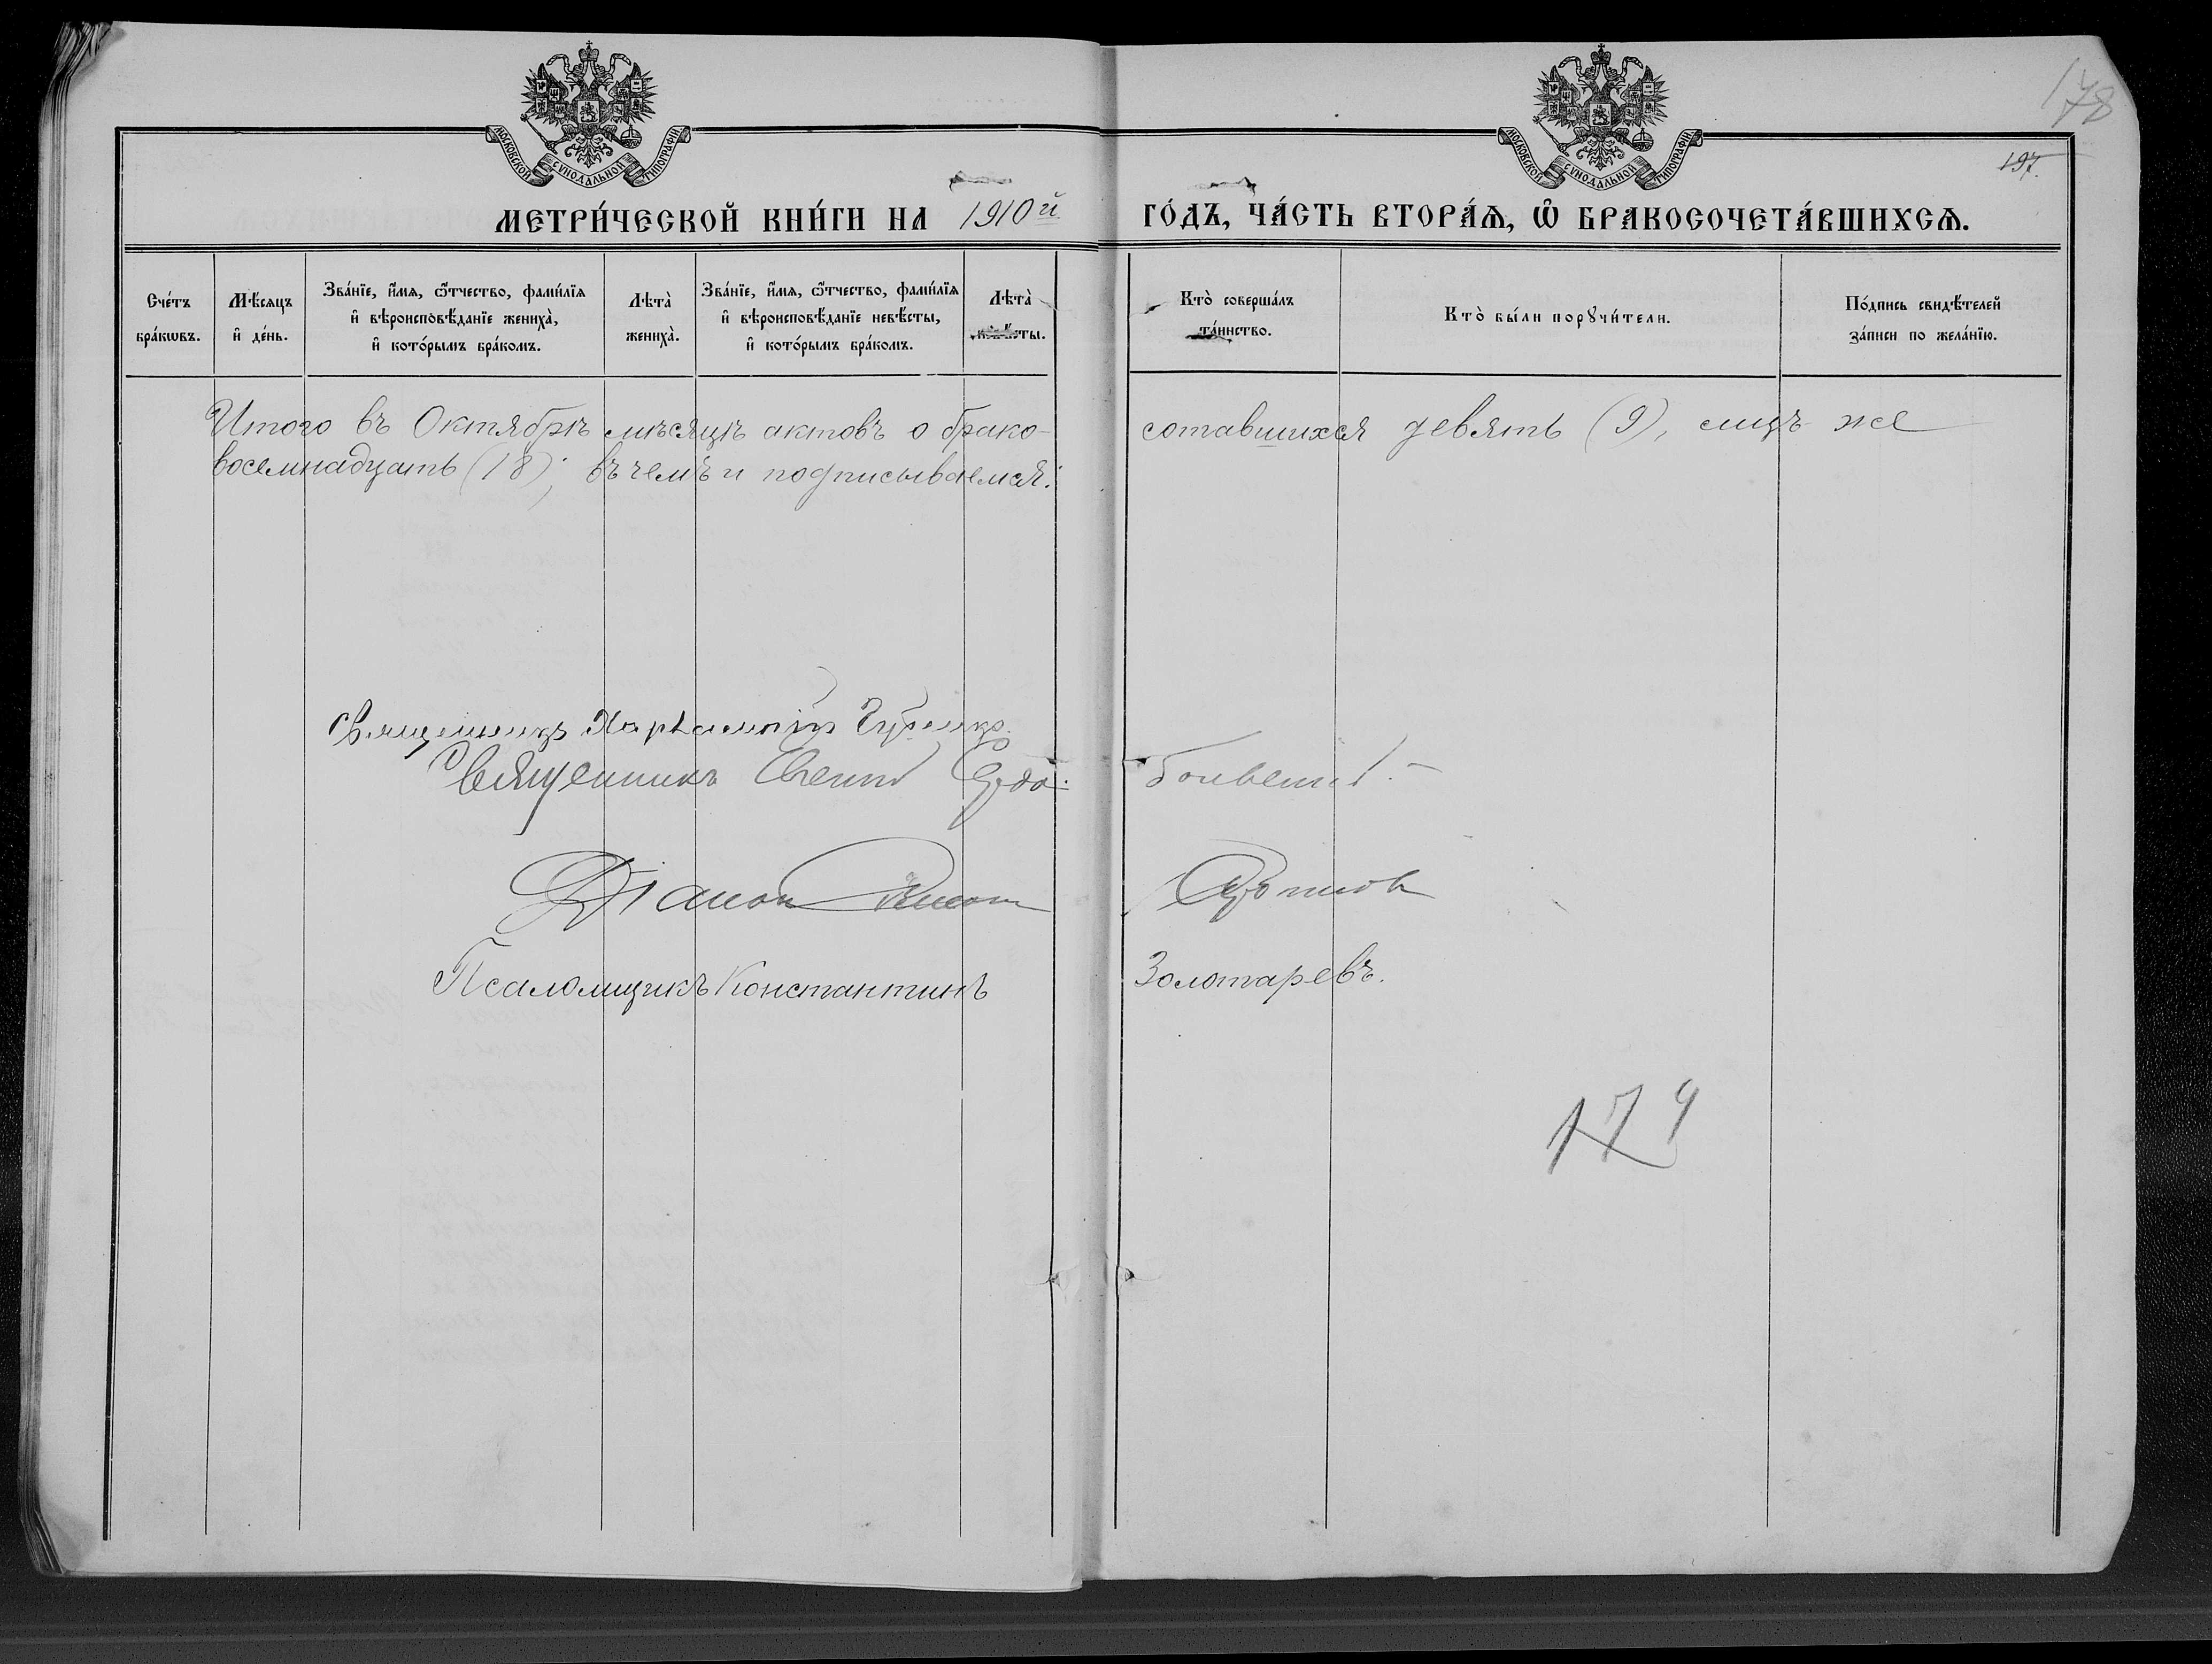 178
МОСКОВСКОЙ СѴНОДАЛЬНОЙ ТИПОГРАФІИ
МОСКОВСКОЙ СѴНОДАЛЬНОЙ ТИПОГРАФІИ
197.
МЕТРИ́ЧЕСКОЙ КНИ́ГИ НА 1910й ГО́ДЪ, ЧА́СТЬ ВТОРА́Ѧ, Ѿ БРАКОСОЧЕТА́ВШИХСѦ.
Сче́тъ
бра́кѡвъ.
Мѣ́сяцъ
и҆ де́нь.
Зва́нїе, и҆́мя, ѻ҆́тчество, фами́лїя
и҆ вѣроисповѣ́данїе жениха̀,
и҆ кото́рымъ бра́комъ.
Лѣта̀
жениха̀.
Зва́нїе, и҆́мя, ѻ҆́тчество, фами́лїя
и҆ вѣроисповѣ́данїе невѣ́сты,
и҆ кото́рымъ бра́комъ.
Лѣта̀
невѣ́сты.
Кто̀ соверша́лъ
та́инство.
Кто̀ бы́ли порꙋчи́тели.
По́дпись свидѣ́телей
за́писи по жела́нїю.
Итого въ Октябрѣ мѣсяцѣ актовъ о брако- сотавшихся девять (9), лицъ же
восемнадцать (18); въ чемъ и подписываемся:
Священникъ Харлампій
Священникъ Евгеній
Діаконъ
Псаломщикъ Константинъ Золотаревъ.
179